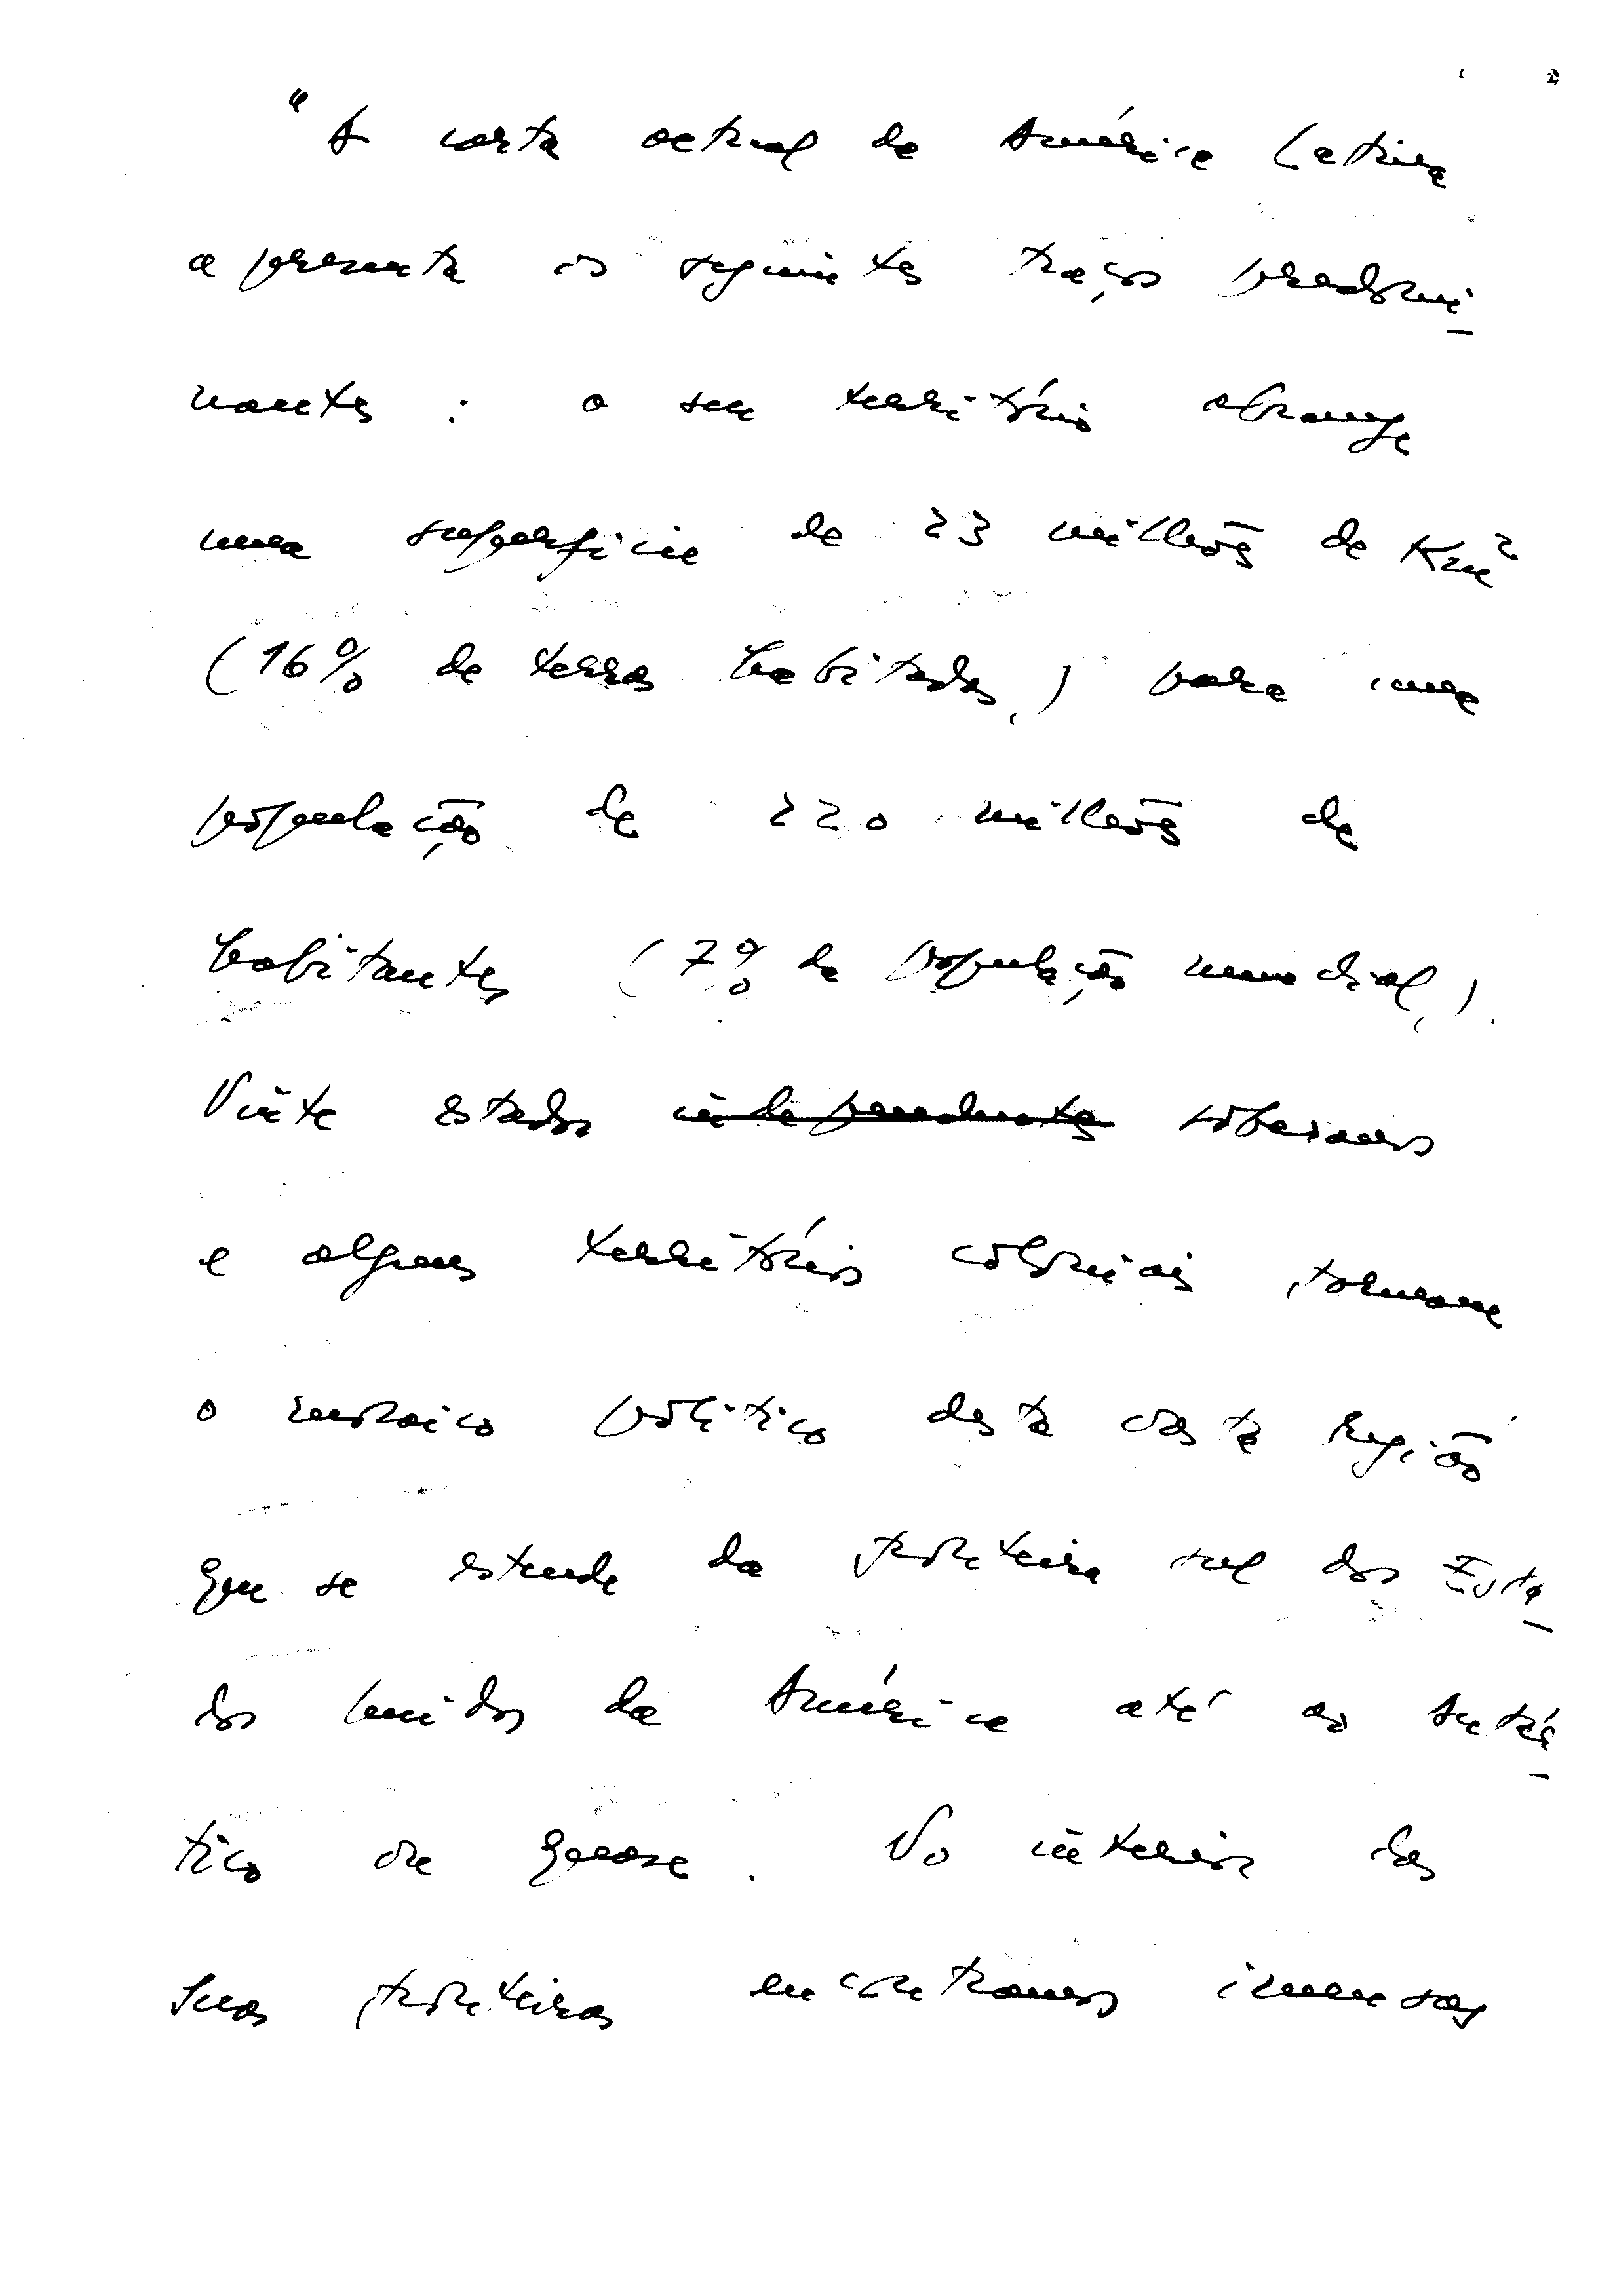 "A carta actual da América Latina
apresenta os seguintes traços predomi-
nantes : o seu território abrange
uma superfície de 23 milhões de Km²
(16% de terras habitadas,) para uma
população de 220 milhões de
habitantes (7% da população mundial,).
Vinte estados independentes soberanos
e alguns territórios coloniais, formam
o mosaico político desta vasta região
que se estende da fronteira sul dos Esta-
dos Unidos da América até ao Antár-
tico ou quase. No interior das
suas fronteiras encontramos imensas